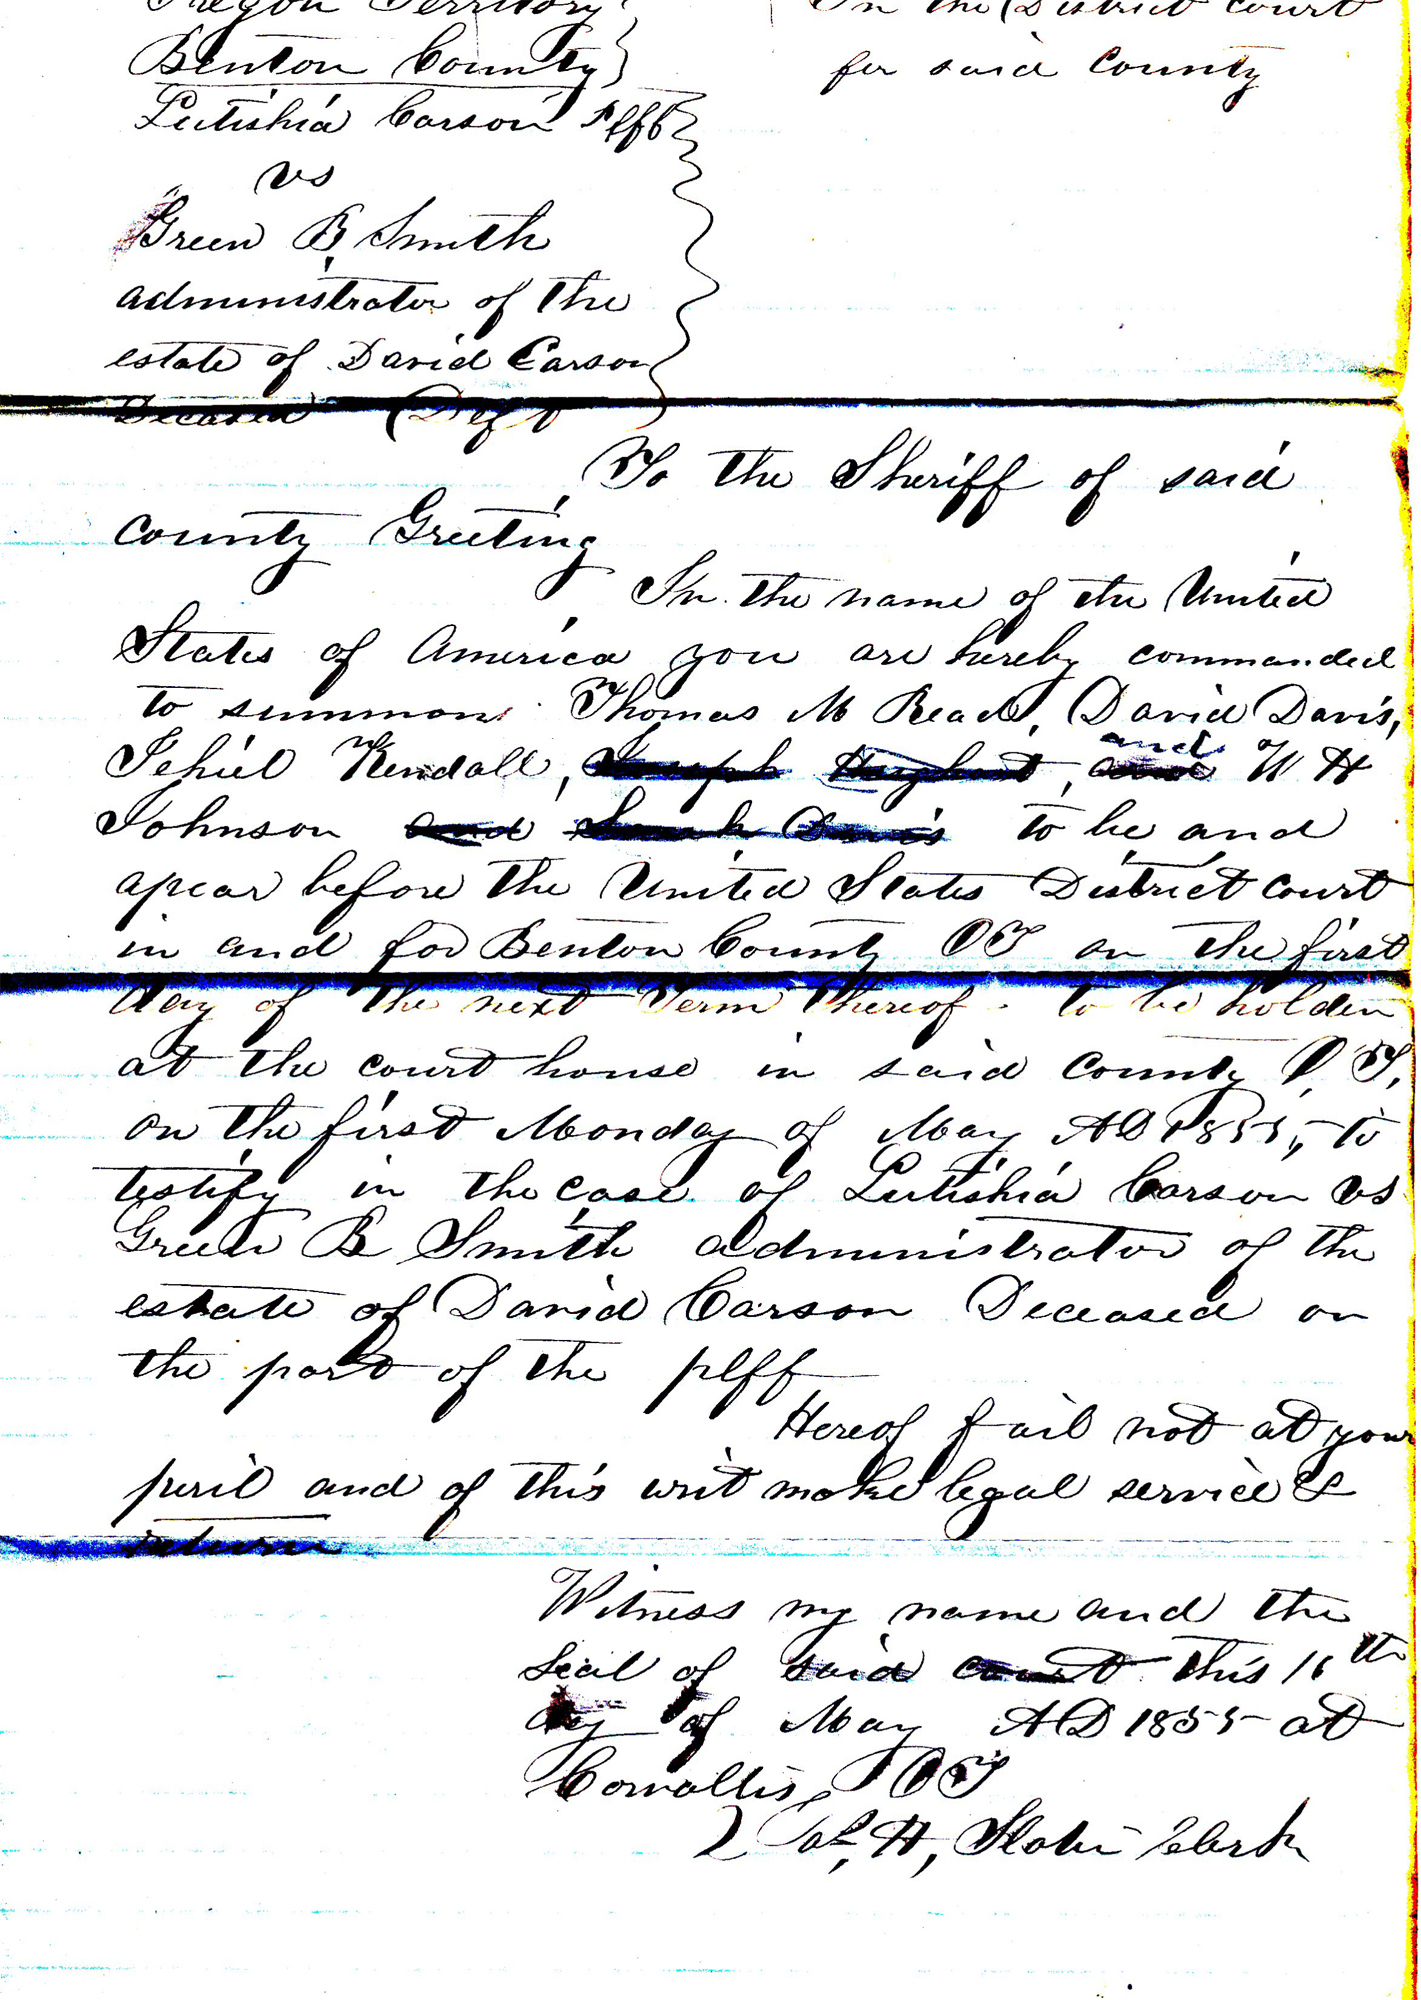 Oregon Territory
Benton County
In the District court
for said County
Lutishia Carson Plff
vs
Green B Smith
administrator of the
estate of David Carson
Deceased Deft
To the Sheriff of said
County Greeting
In the name of the United
States of America you are hereby commanded
to summon Thomas M Read, David Davis,
Jehiel Kendall, Joseph and and W H
Johnson and Sarah Davis to be and
apear before the United States District court
in and for Benton County OT on the first
day of the next Term thereof to be holden
at the court house in said County O.T,
on the first Monday of May AD 1855, to
testify in the case of Lutishia Carson vs
Green B Smith administrator of the
estate of David Carson Deceased on
the part of the plff
Hereof fail not at your
peril and of this writ make legal service &
return
Witness my name and the
Seal of said court this 16th
day of May AD 1855 at
Corvallis OT
Jas, H, Slater Clerk